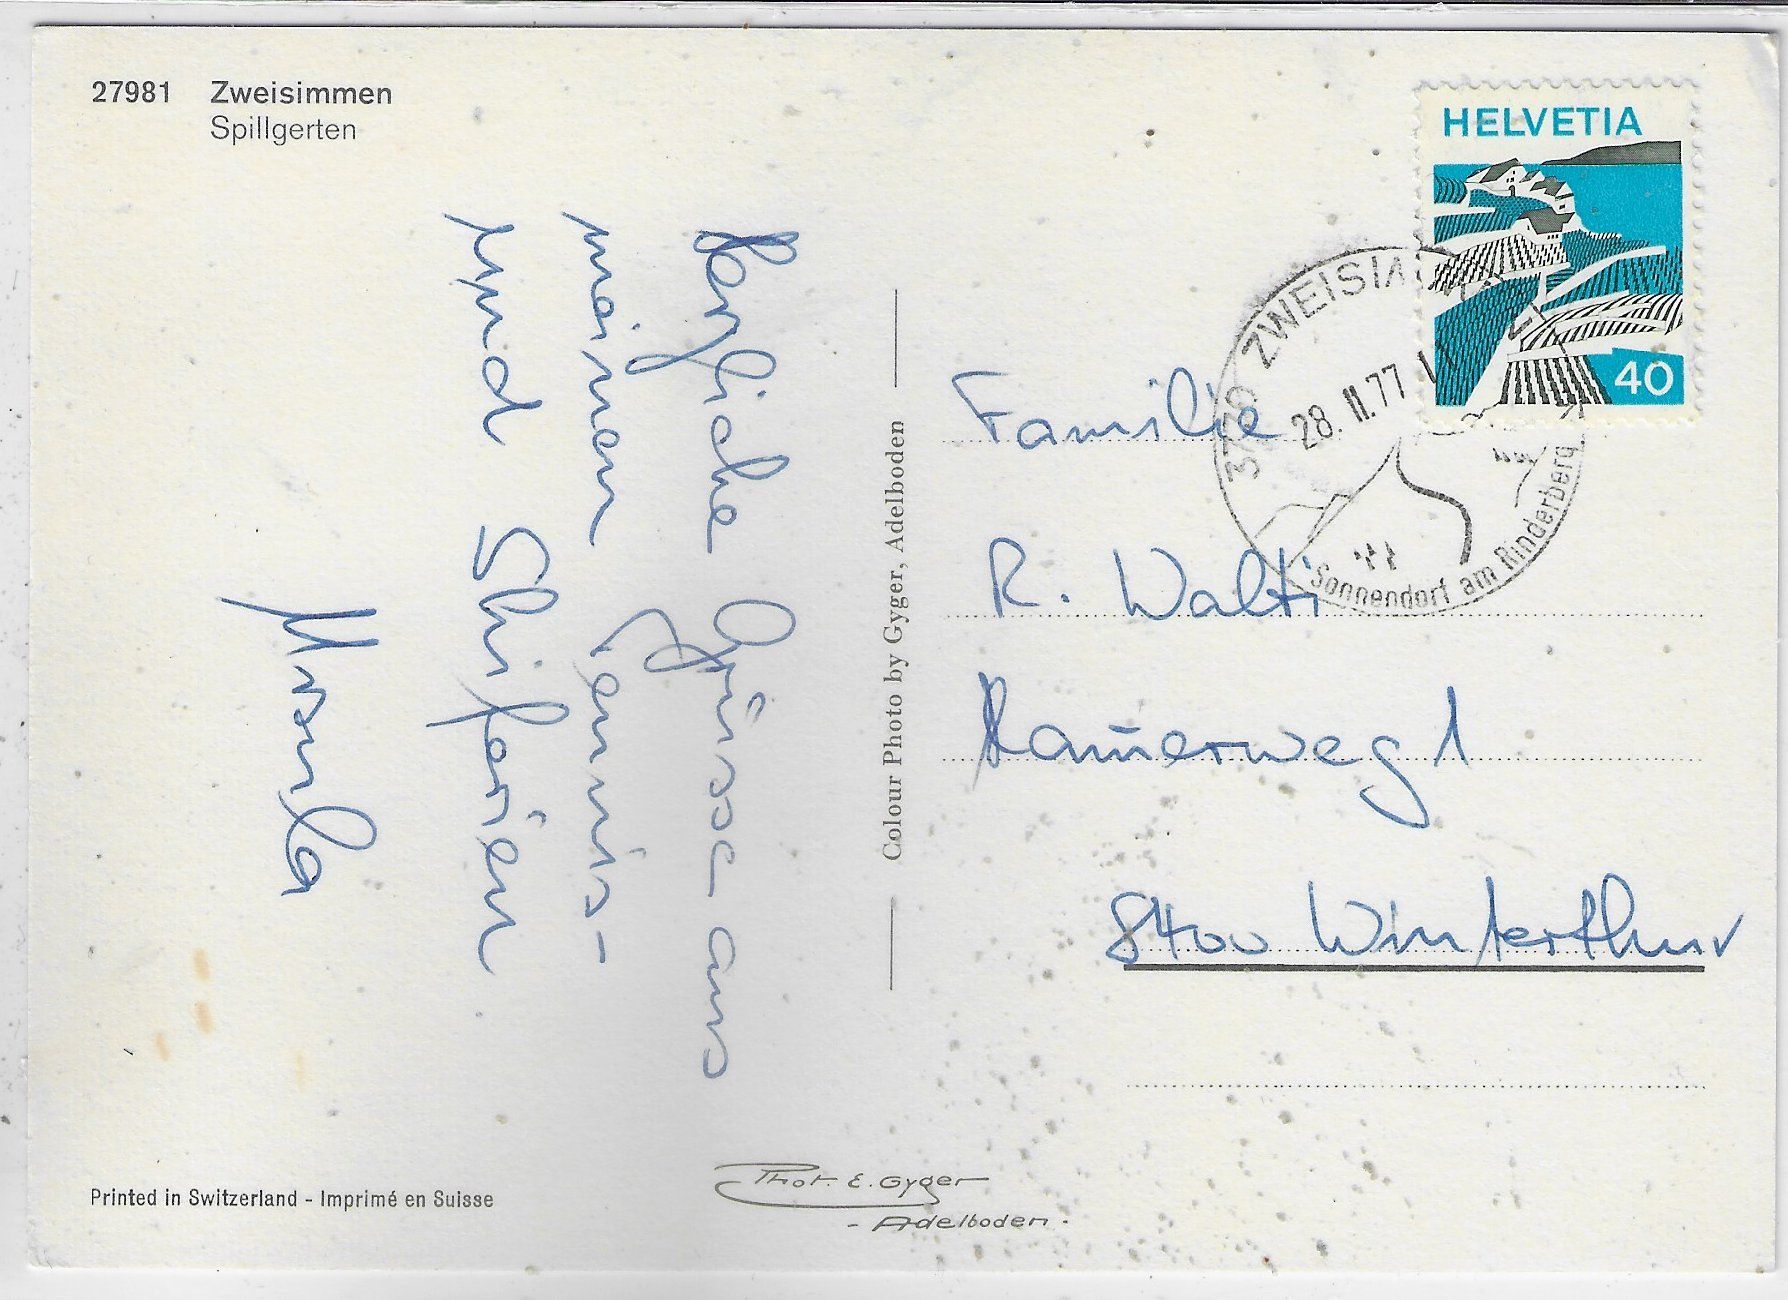 27981 Zweisimmen
Spillgerten
Herzliche Grüsse aus
meinen Tennis-
und Skiferien
Ursula
Colour Photo by Gyger, Adelboden
HELVETIA
40
3770 ZWEISIMMEN
28. II. 77
Sonnendorf am Rinderberg
Familie
R. Walti
8400 Winterthur
Printed in Switzerland - Imprimé en Suisse
Phot. E. Gyger
- Adelboden -